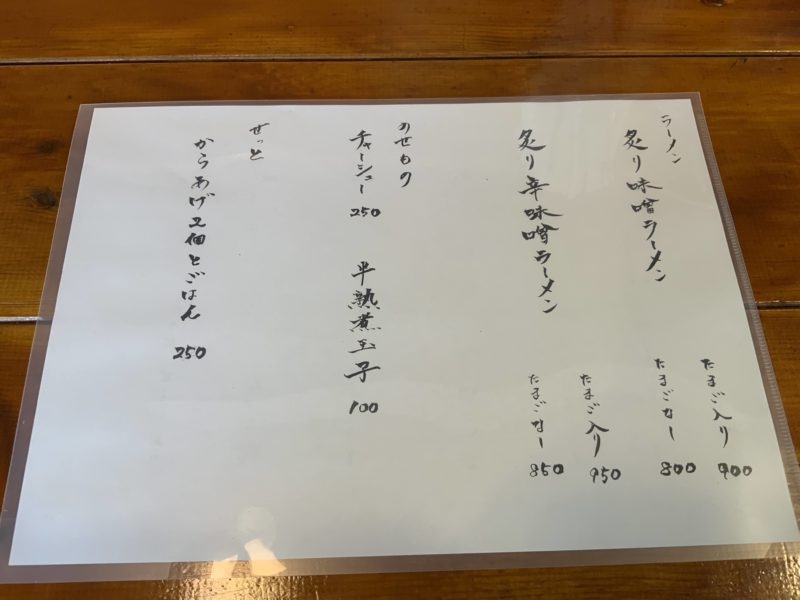 ラーメン
炙り味噌ラーメン
たまご入り 900
たまごなし 800
炙り辛味噌ラーメン
たまご入り 950
たまごなし 850
のせもの
チャーシュー 250
半熟煮玉子 100
せっと
からあげ2個とごはん 250